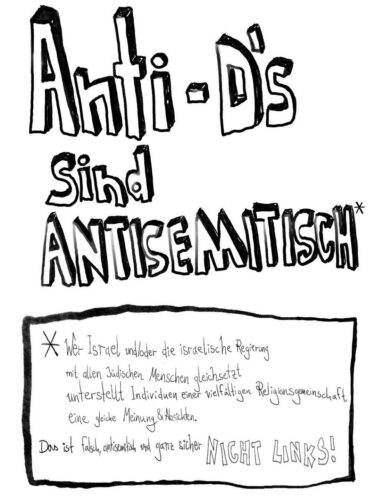 Anti-D's
sind
ANTISEMITISCH*
* Wer Israel und/oder die israelische Regierung
mit allen Jüdischen Menschen gleichsetzt
unterstellt Individuen einer vielfältigen Religionsgemeinschaft
eine gleiche Meinung & Absichten.
Das ist falsch, antisemitisch und ganz sicher NIGHT LINKS!